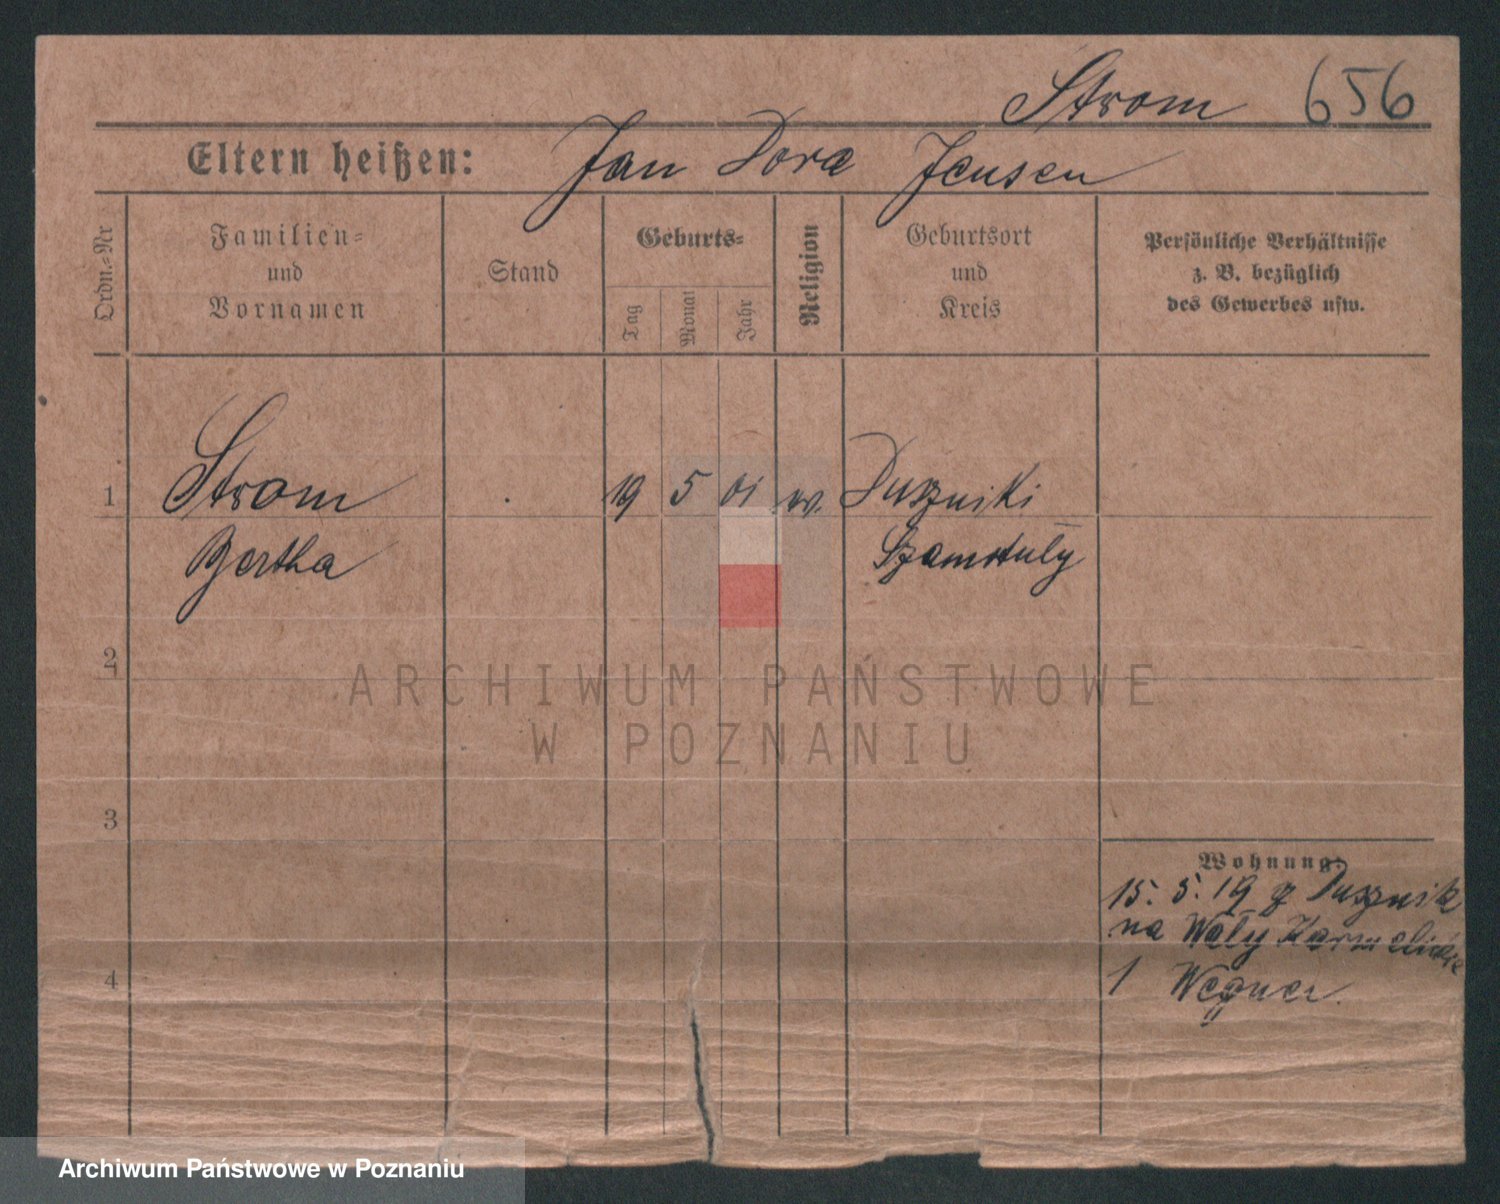 Strom 656
Eltern heißen: Jan Dora Jensen
Ordn.-Nr
Familien-
und
Vornamen
Stand
Geburts-
Tag
Monat
Jahr
Religion
Geburtsort
und
Kreis
Persönliche Verhältnisse
z. B. bezüglich
des Gewerbes usw.
1 Strom 19 5 01 ew. Duszniki
Bertha Szamotuły
2
ARCHIWUM PAŃSTWOWE
W POZNANIU
3
Wohnung:
15. 5. 19 z Dusznik
na Wały Karmelickie
4
1 Wegner
Archiwum Państwowe w Poznaniu